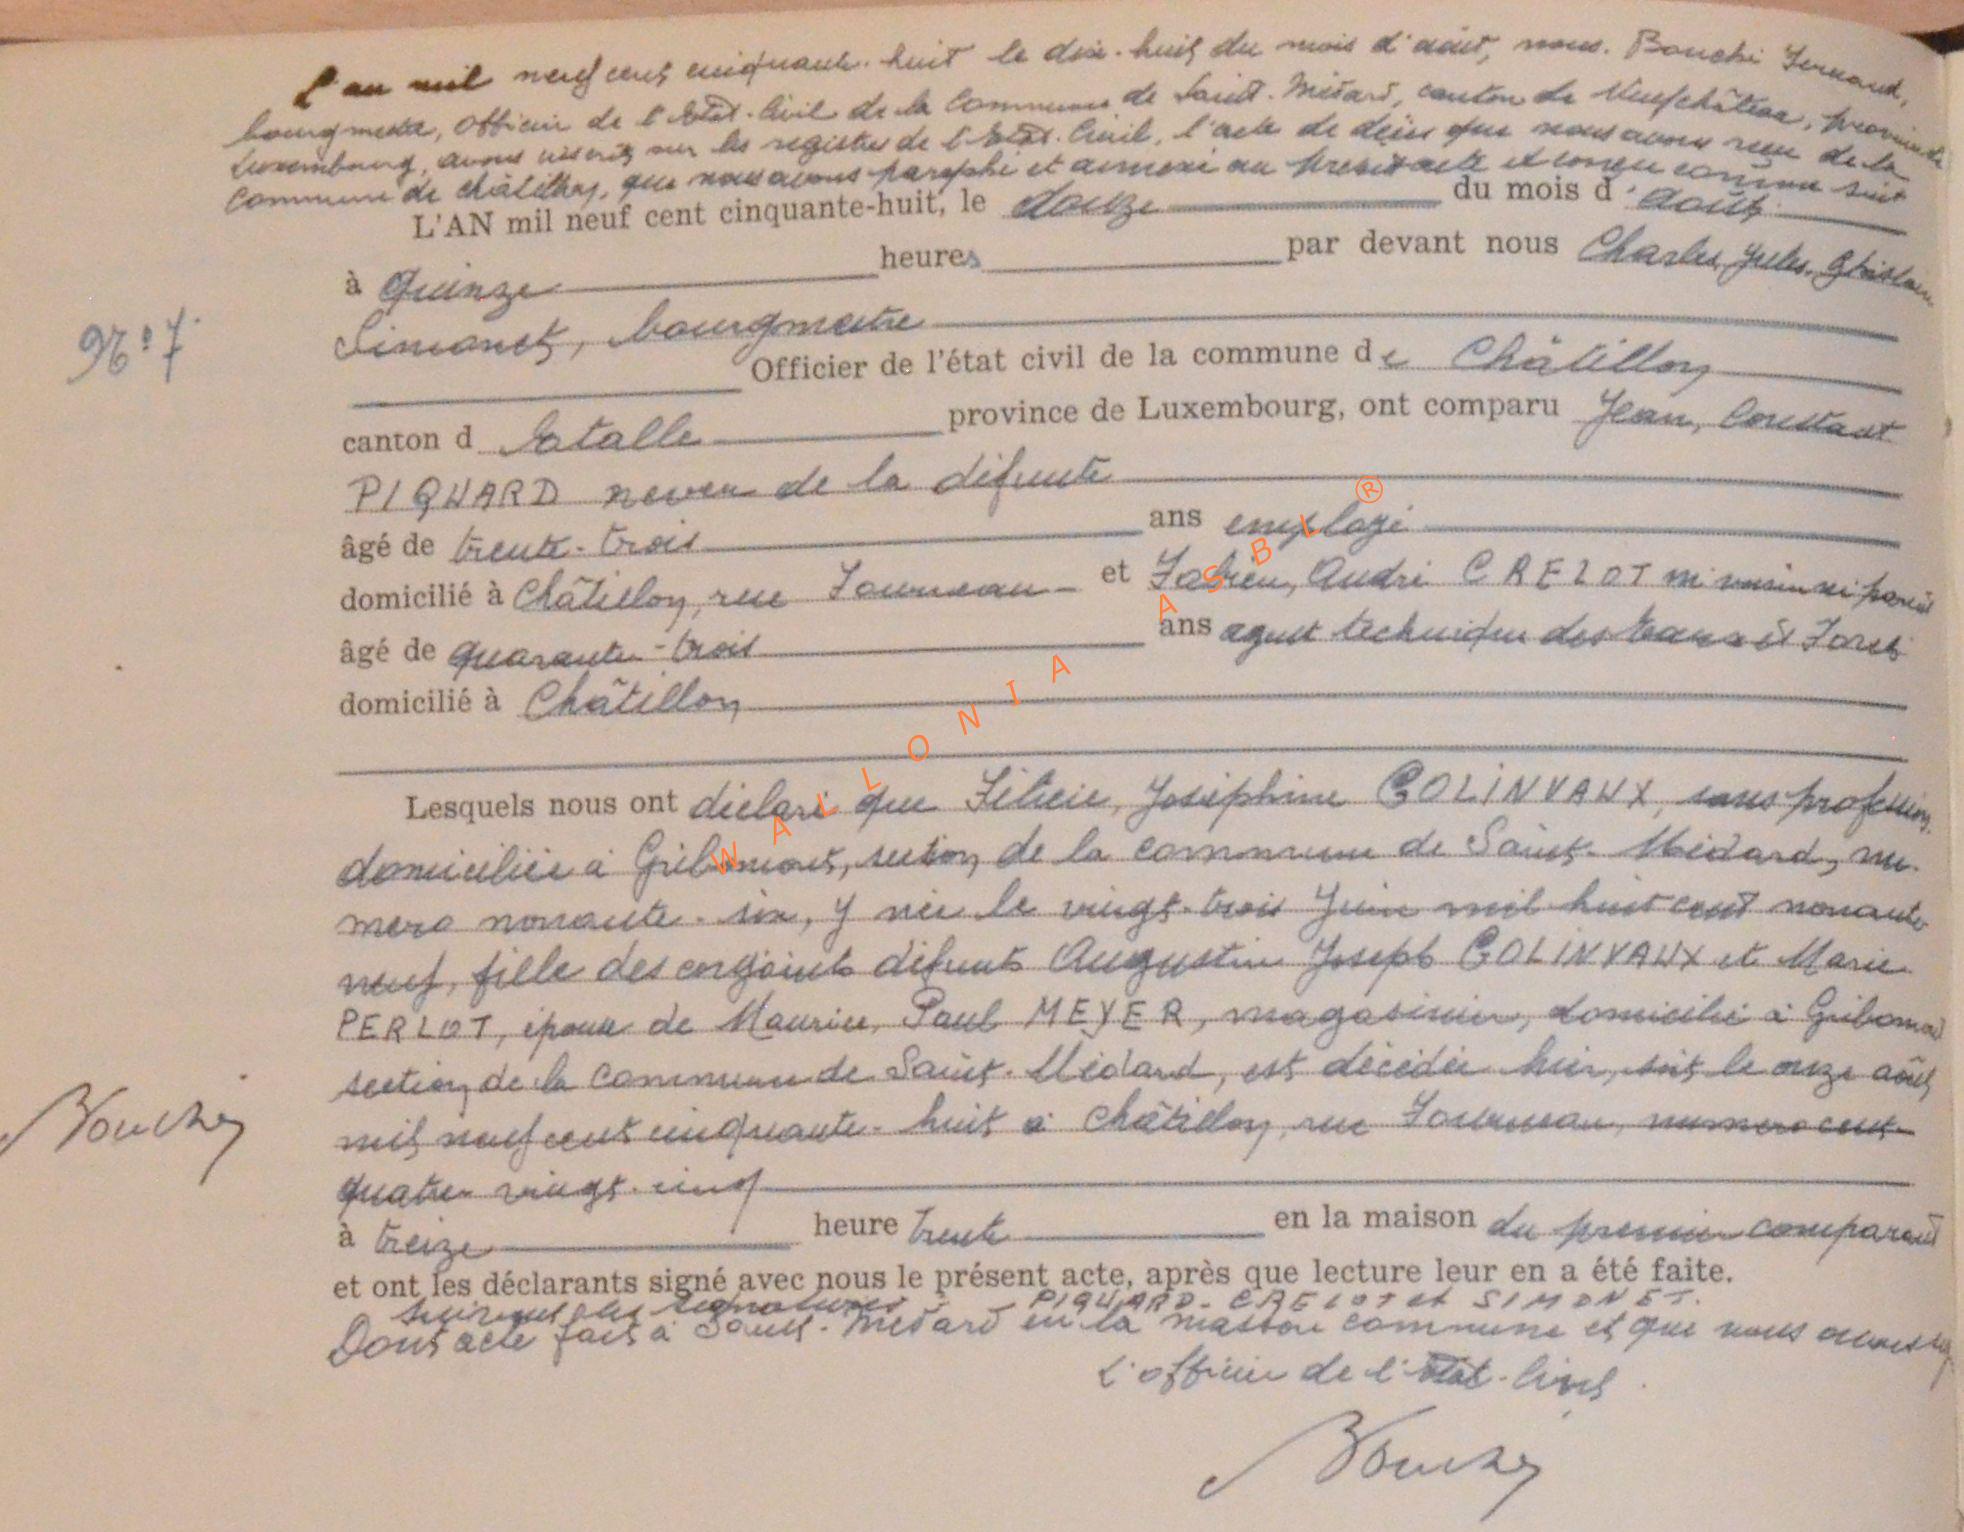 L'an mil neuf cent cinquante-huit le dix-huit du mois d'août, nous. Bouché Fernand,
bourgmestre, Officier de l'Etat-Civil de la Commune de Saint-Médard, canton de Neufchâteau, province de
Luxembourg, avons inscrit sur les registres de l'Etat-Civil, l'acte de décès que nous avons reçu de la
Commune de Châtillon, que nous avons paraphé et annexé au présent acte et conçu comme suit
L'AN mil neuf cent cinquante-huit, le douze du mois d'août
à quinze heures par devant nous Charles, Jules, Ghislain
N° 7
Simonet, bourgmestre
Officier de l'état civil de la commune de Châtillon
canton d Etalle province de Luxembourg, ont comparu Jean, Constant
PIQUARD neveu de la défunte
âgé de trente-trois ans employé
domicilié à Châtillon, rue Fourneau et Fabien, André CRELOT ni voisin ni parent
âgé de quarante-trois ans agent technique des Eaux et Forêts
domicilié à Châtillon
Lesquels nous ont déclaré que Félicie, Joséphine COLINVAUX, sans profession,
domiciliée à Gribomont, section de la commune de Saint-Médard, nu-
méro nonante-six, y née le vingt-trois Juin mil huit cent nonante
neuf, fille des conjoints défunts Augustin Joseph COLINVAUX et Marie
PERLOT, épouse de Maurice, Paul MEYER, magasinier, domicilié à Gribomont
section de la commune de Saint-Médard, est décédée hier, soit le onze août
mil neuf cent cinquante-huit à Châtillon, rue Fourneau, numéro cent
Bouché
quatre-vingt-cinq
à treize heure trente en la maison du premier comparant
et ont les déclarants signé avec nous le présent acte, après que lecture leur en a été faite.
suivent les signatures : PIQUARD - CRELOT et SIMONET.
Dont acte fait à Saint-Médard en la maison commune et que nous avons signé
L'officier de l'Etat-Civil
Bouché
WALLONIA ASBL ®